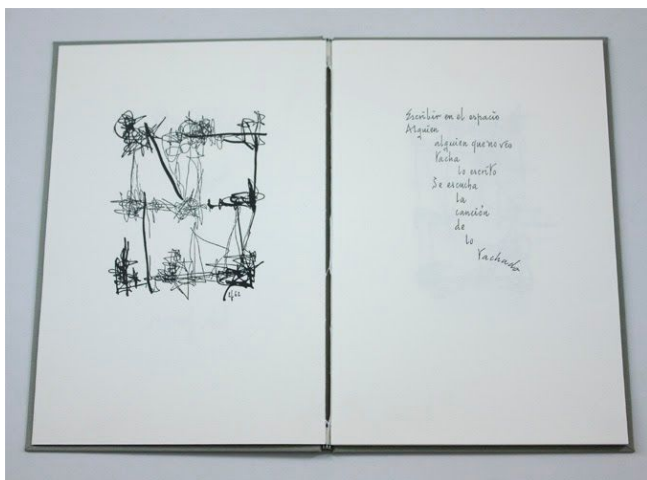 Escribir en el espacio
Alguien
alguien que no veo
Tacha
lo escrito
Se escucha
la
canción
de
lo
Tachado